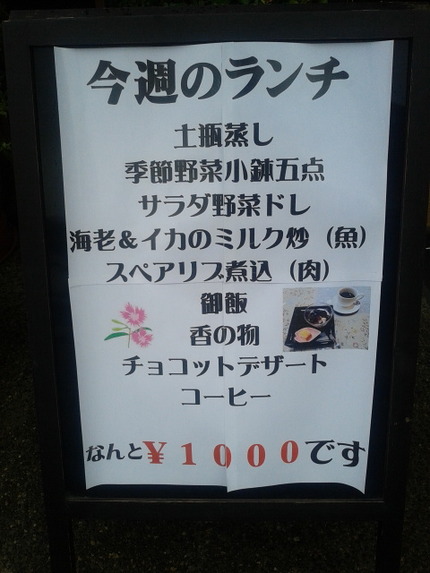 今週のランチ
土瓶蒸し
季節野菜小鉢五点
サラダ野菜ドレ
海老&イカのミルク炒(魚)
スペアリブ煮込(肉)
御飯
香の物
チョコットデザート
コーヒー
なんと¥1000です